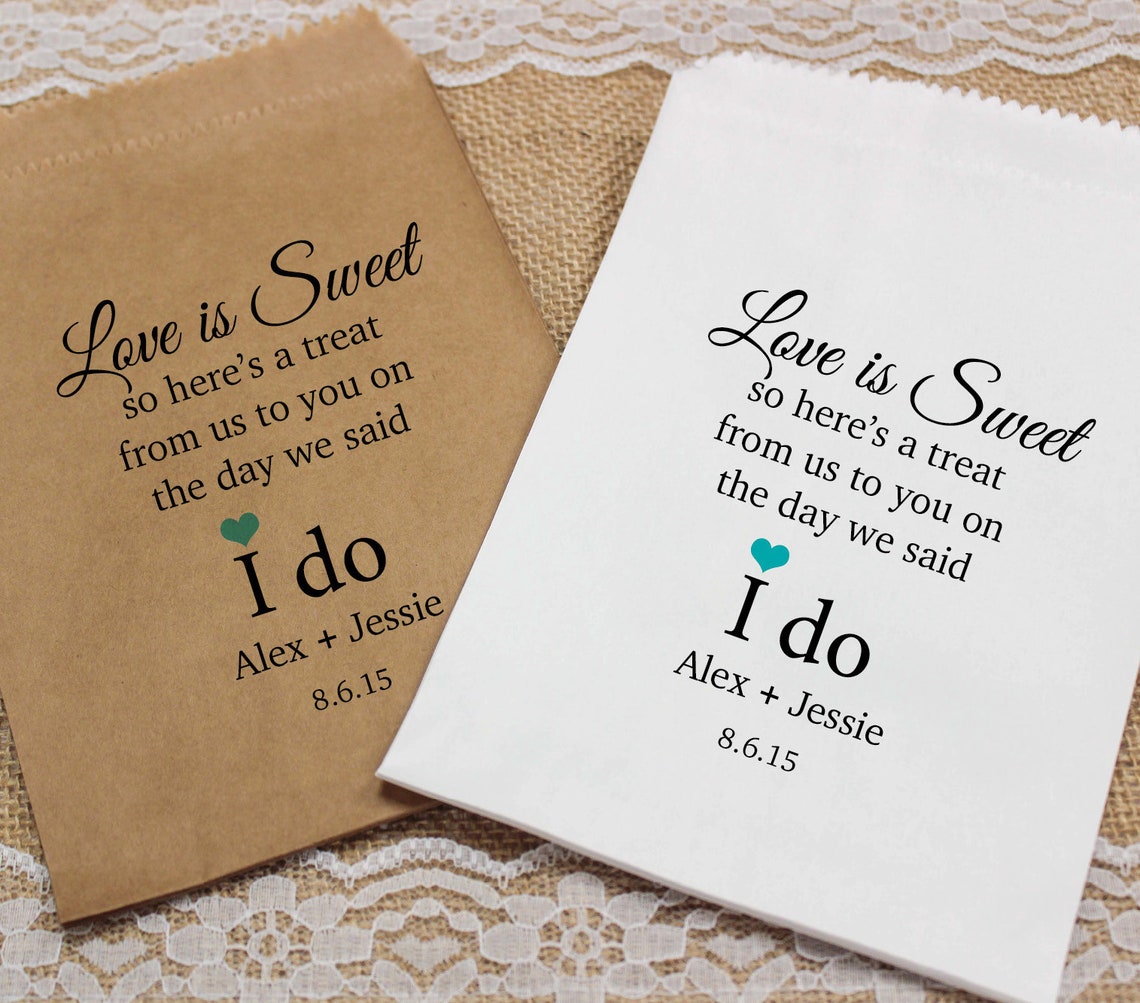 Love is Sweet
so here's a treat
from us to you on
the day we said
I do
Alex + Jessie
8.6.15
Love is Sweet
so here's a treat
from us to you on
the day we said
I do
Alex + Jessie
8.6.15